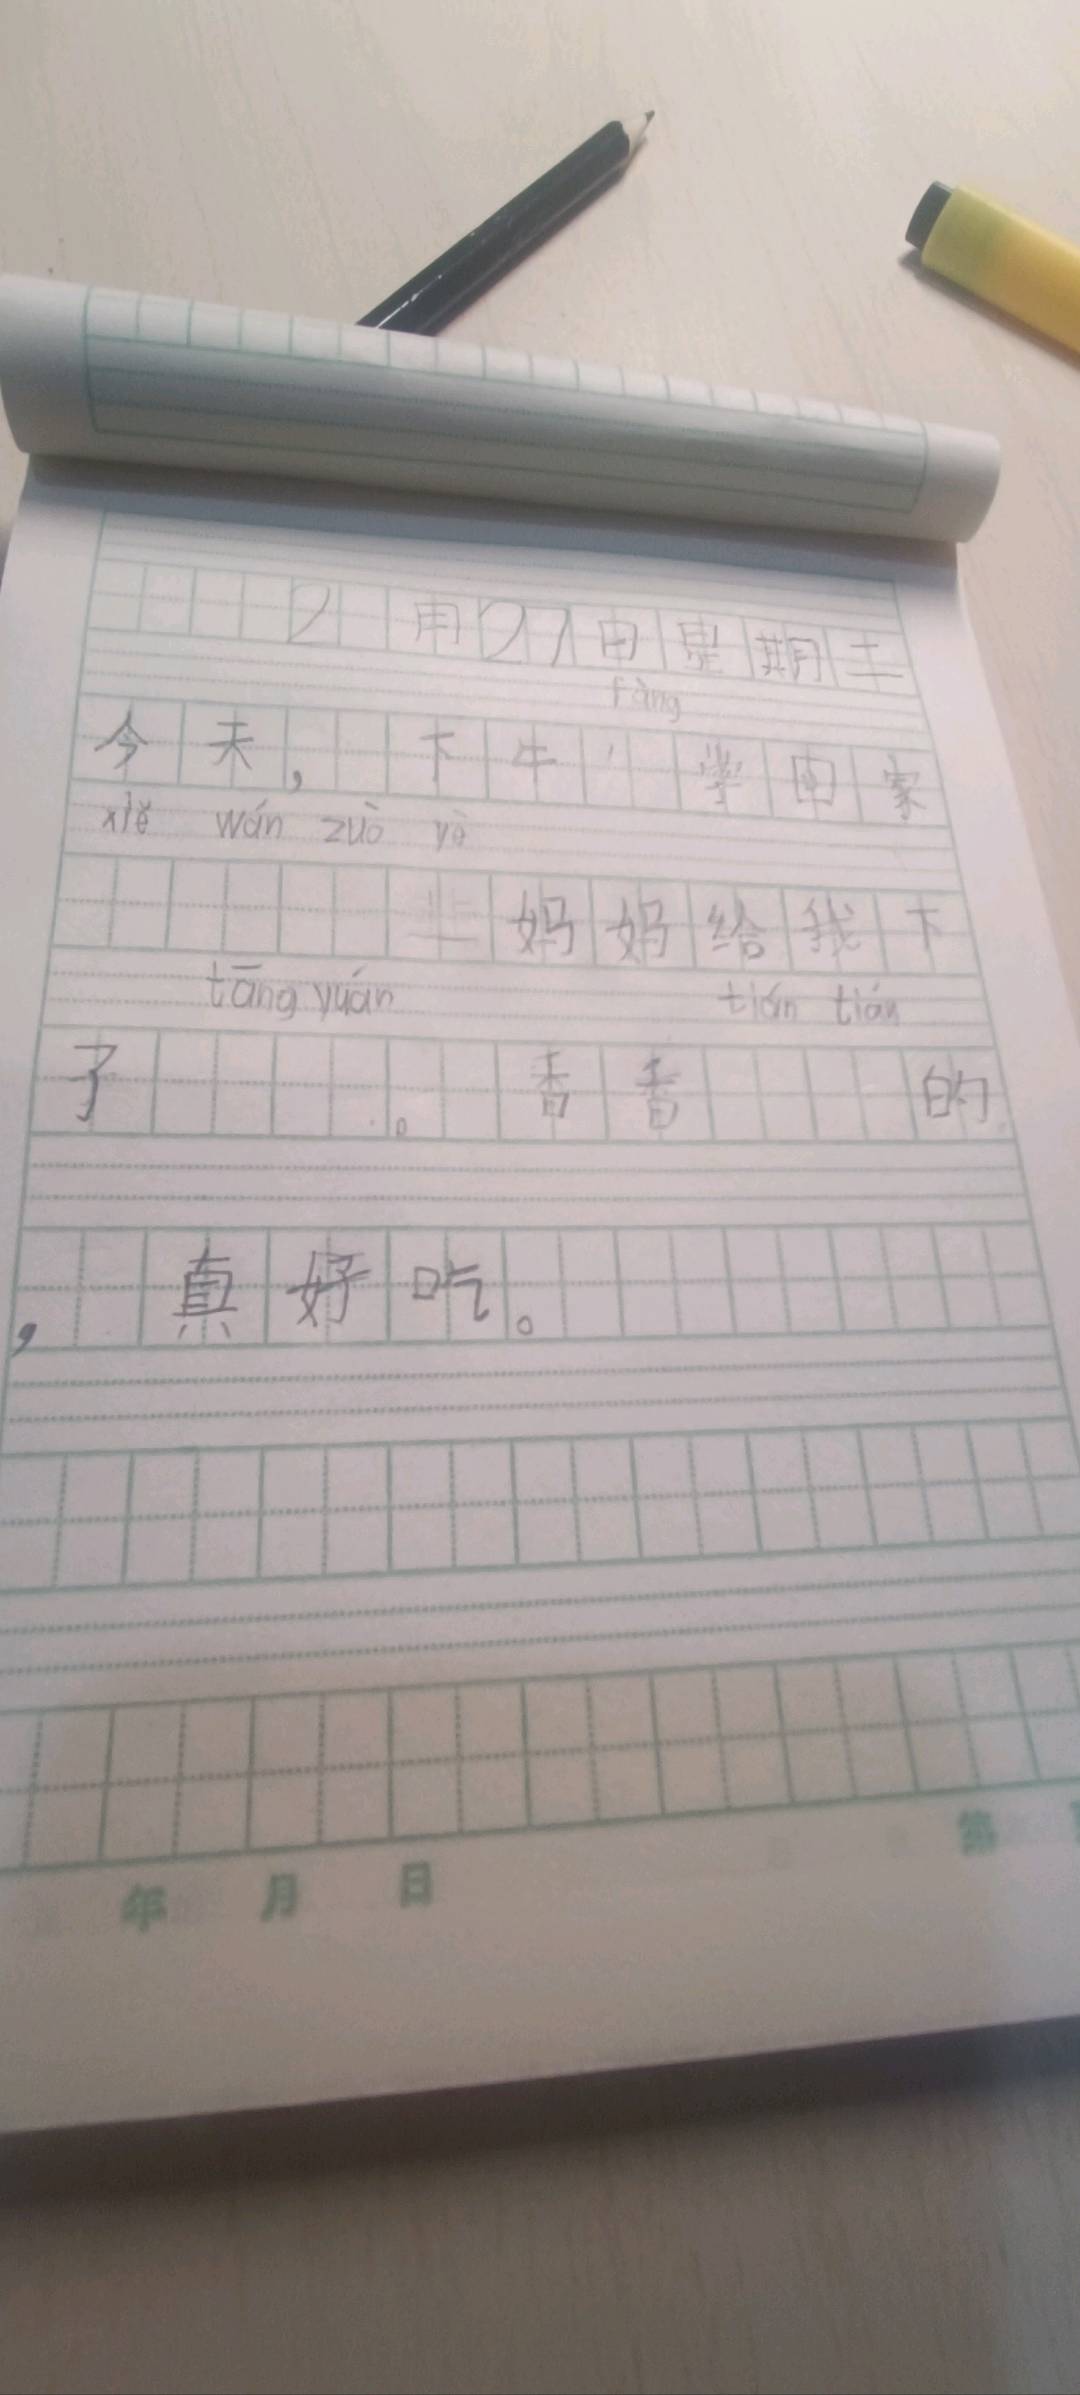 2月27日星期土
fàng
今天,下牛 学回家
xiě wán zuò yè
妈妈给我下
tāng yuán tián tián
了 。香香 的
,真好吃。
年 月 日 第